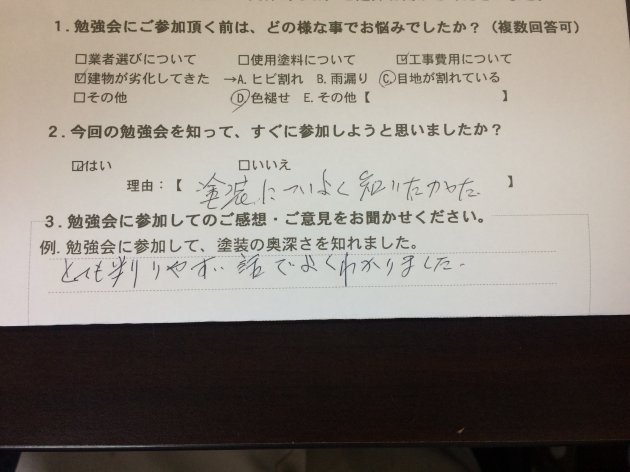 1.勉強会にご参加頂く前は、どの様な事でお悩みでしたか?(複数回答可)
□業者選びについて □使用塗料について ☑工事費用について
☑建物が劣化してきた →A.ヒビ割れ B.雨漏り Ⓒ目地が割れている
□その他 Ⓓ色褪せ E.その他【 】
2.今回の勉強会を知って、すぐに参加しようと思いましたか?
☑はい □いいえ
理由:【 塗装についてよく知りたかった 】
3.勉強会に参加してのご感想・ご意見をお聞かせください。
例.勉強会に参加して、塗装の奥深さを知れました。
とても判りやすい話でよくわかりました。